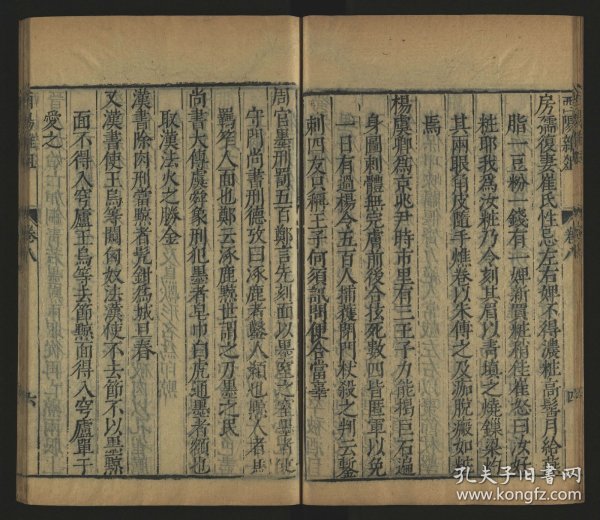 房孺復妻崔氏性忌左右婢不得濃粧高髻月給
脂一豆粉一錢有一婢新買粧稍佳崔怒曰汝好
粧耶我為汝粧乃令刻其眉以青填之燒鏁梁灼
其兩眼角皮隨手燋卷以朱傅之及痂脫瘢如粧
焉
楊虞卿為京兆尹時市里有三王子力能揭巨石遍
身圖刺體無完膚前後合抵死數四皆匿軍以免
一日有過楊令五百人捕獲閉門杖殺之判云鏨
刺四支只稱王子何須訊問便合當辜
周官墨刑罰五百鄭言先刻面以墨窒之窒墨者使
守門尚書刑德攷曰涿鹿者鑿人顙也黥人者馬
羈笮人面也鄭云涿鹿黥世謂之刀墨之民
尚書大傳虞舜象刑犯墨者皁巾白虎通墨者額也
取漢法火之勝金
漢書除肉刑當黥者髡鉗為城旦舂
又漢書使王烏等闚匈奴法漢使不去節不以墨黥
面不得入穹廬王烏等去節黥面得入穹廬單于
愛之
酉陽雜俎
卷八
六
酉陽雜俎
卷八
孔夫子旧书网
www.kongfz.com